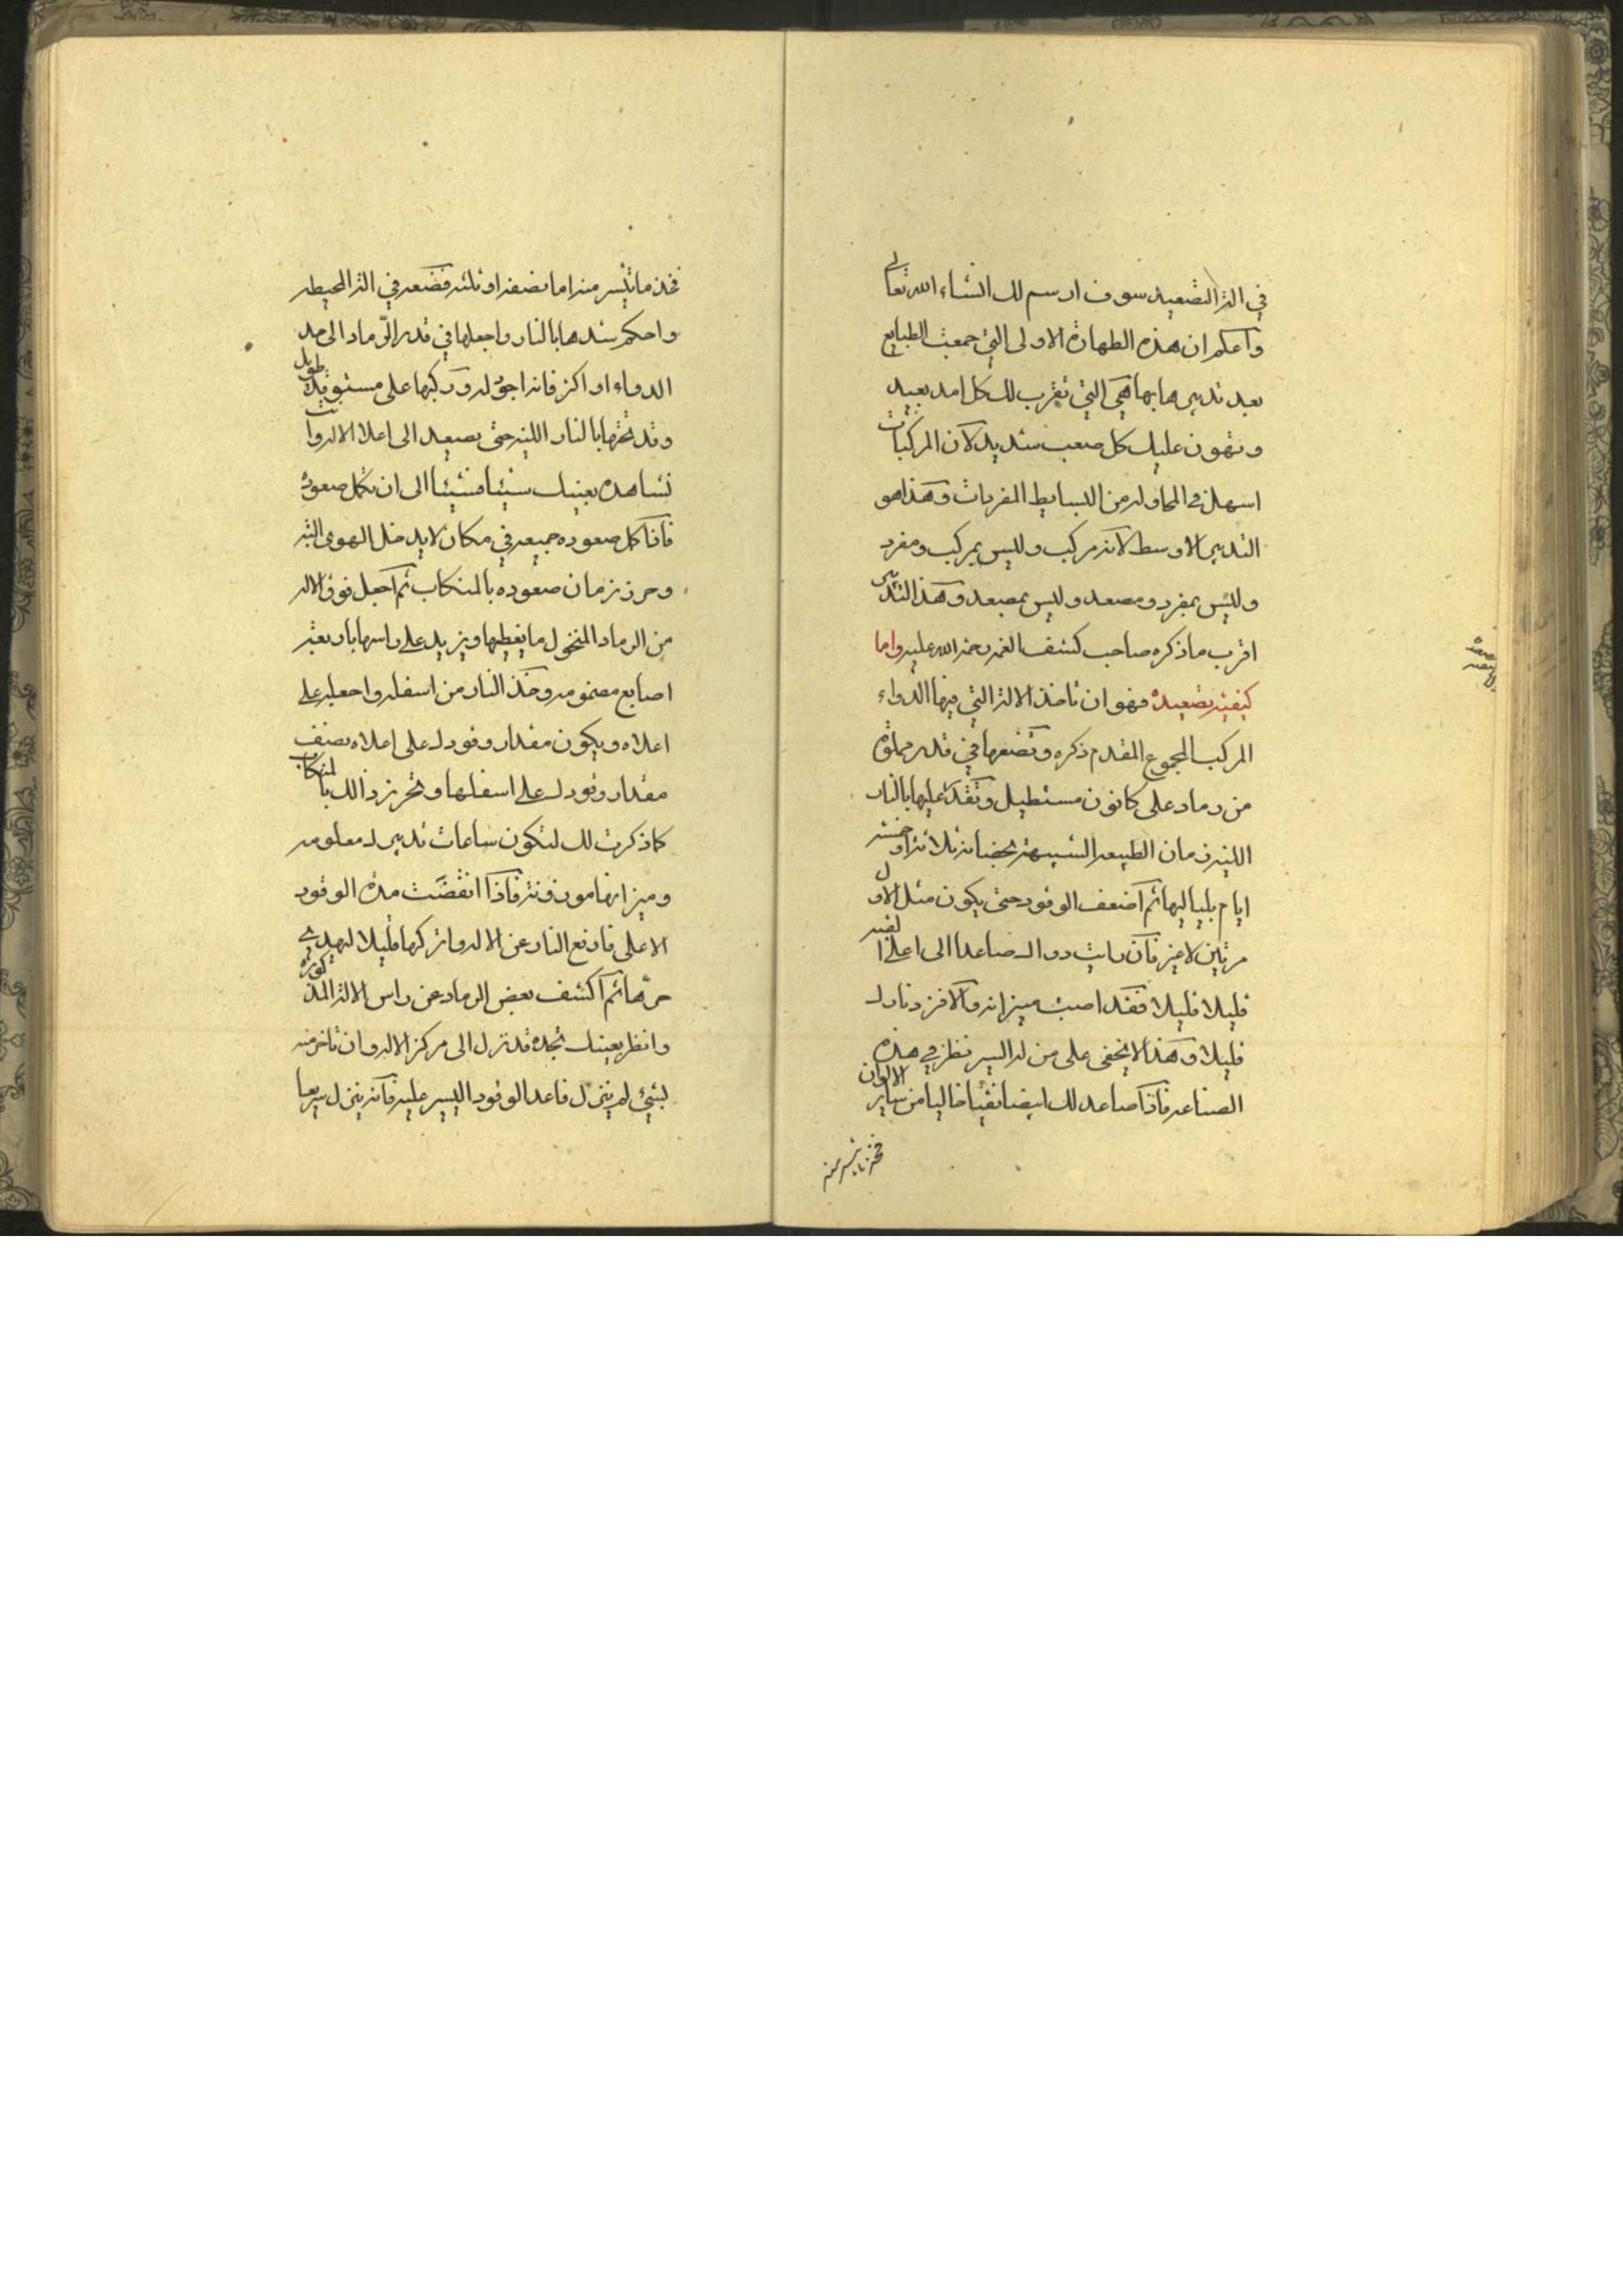 في الة التصعيد سوف ارسم لك انشاء الله تعالى
واعلم ان هذه الطهارة الاولى التي جمعت الطبايع
بعد تدبيرها بها هي التي تقرب لك كل امد بعيد
وتهون عليك كل صعب شديد لان المركبات
اسهل في المحاوله من البسايط المفردات وهذا هو
التدبير الاوسط لانه مركب وليس بمركب ومفرد
وليس بمفرد ومصعد وليس بمصعد وهذا التدبير
اقرب ما ذكره صاحب كشف الغمه رحمة الله عليه واما
كيفية تصعيده فهو ان تاخذ الالة التي فيها الدواء
المركب المجموع المقدم ذكره وتضعها في قدر مملوة
من رماد على كانون مستطيل وتقد عليها بالنار
اللينه زمان الطبيعه الشبيهة بحضانة ثلاثة او خمسة
ايام بلياليها ثم اضعف الوقود حتى يكون مثل الاول
مرتين لا غير فان رايت دواك صاعدا الى اعلى القبه
قليلا قليلا فقد اصبت ميزانه والا فزد نارك
قليلا وهذا لا يخفى على من له اليسير نظر في هذه
الصناعه فاذا صاعد لك ابيضا نقيا خاليا من ساير الالوان
فخذ ما تيسر منه
فخذ ما تيسر منه اما نصفه او ثلثه فضعه في الة المحيطه
واحكم شدها بالنار واجعلها في قدر الرماد الى حد
الدواء او اكثر فانه اجود له وركبها على مستوقد طويل
وقد تحتها بالنار اللينه حتى يصعد الى اعلا الاله وانت
تشاهده بعينك شيئا فشيئا الى ان يكمل صعوده
فاذا كمل صعوده جميعه في مكان لا يدخل الهوى البته
وحرز زمان صعوده بالمنكاب ثم اجعل فوق الاله
من الرماد المنخول ما يغطيها ويزيد على راسها باربعة
اصابع مضمومه وخذ النار من اسفله واجعله على
اعلاه ويكون مقدار وقودك على اعلاه نصف
مقدار وقودك على اسفلها وتحرز ذالك بالمنكاب
كما ذكرت لك لتكون ساعات تدبيرك معلومه
وميزانها موزونة فاذا انقضت مدة الوقود
الاعلى فارفع النار عن الاله واتركها قليلا ليهدي
حرها ثم اكشف بعض الرماد عن راس الالة المذكورة
وانظر بعينك تجده قد نزل الى مركز الاله وان تاخر منه
شيئ لم ينزل فاعد الوقود اليسير عليه فانه ينزل سريعا